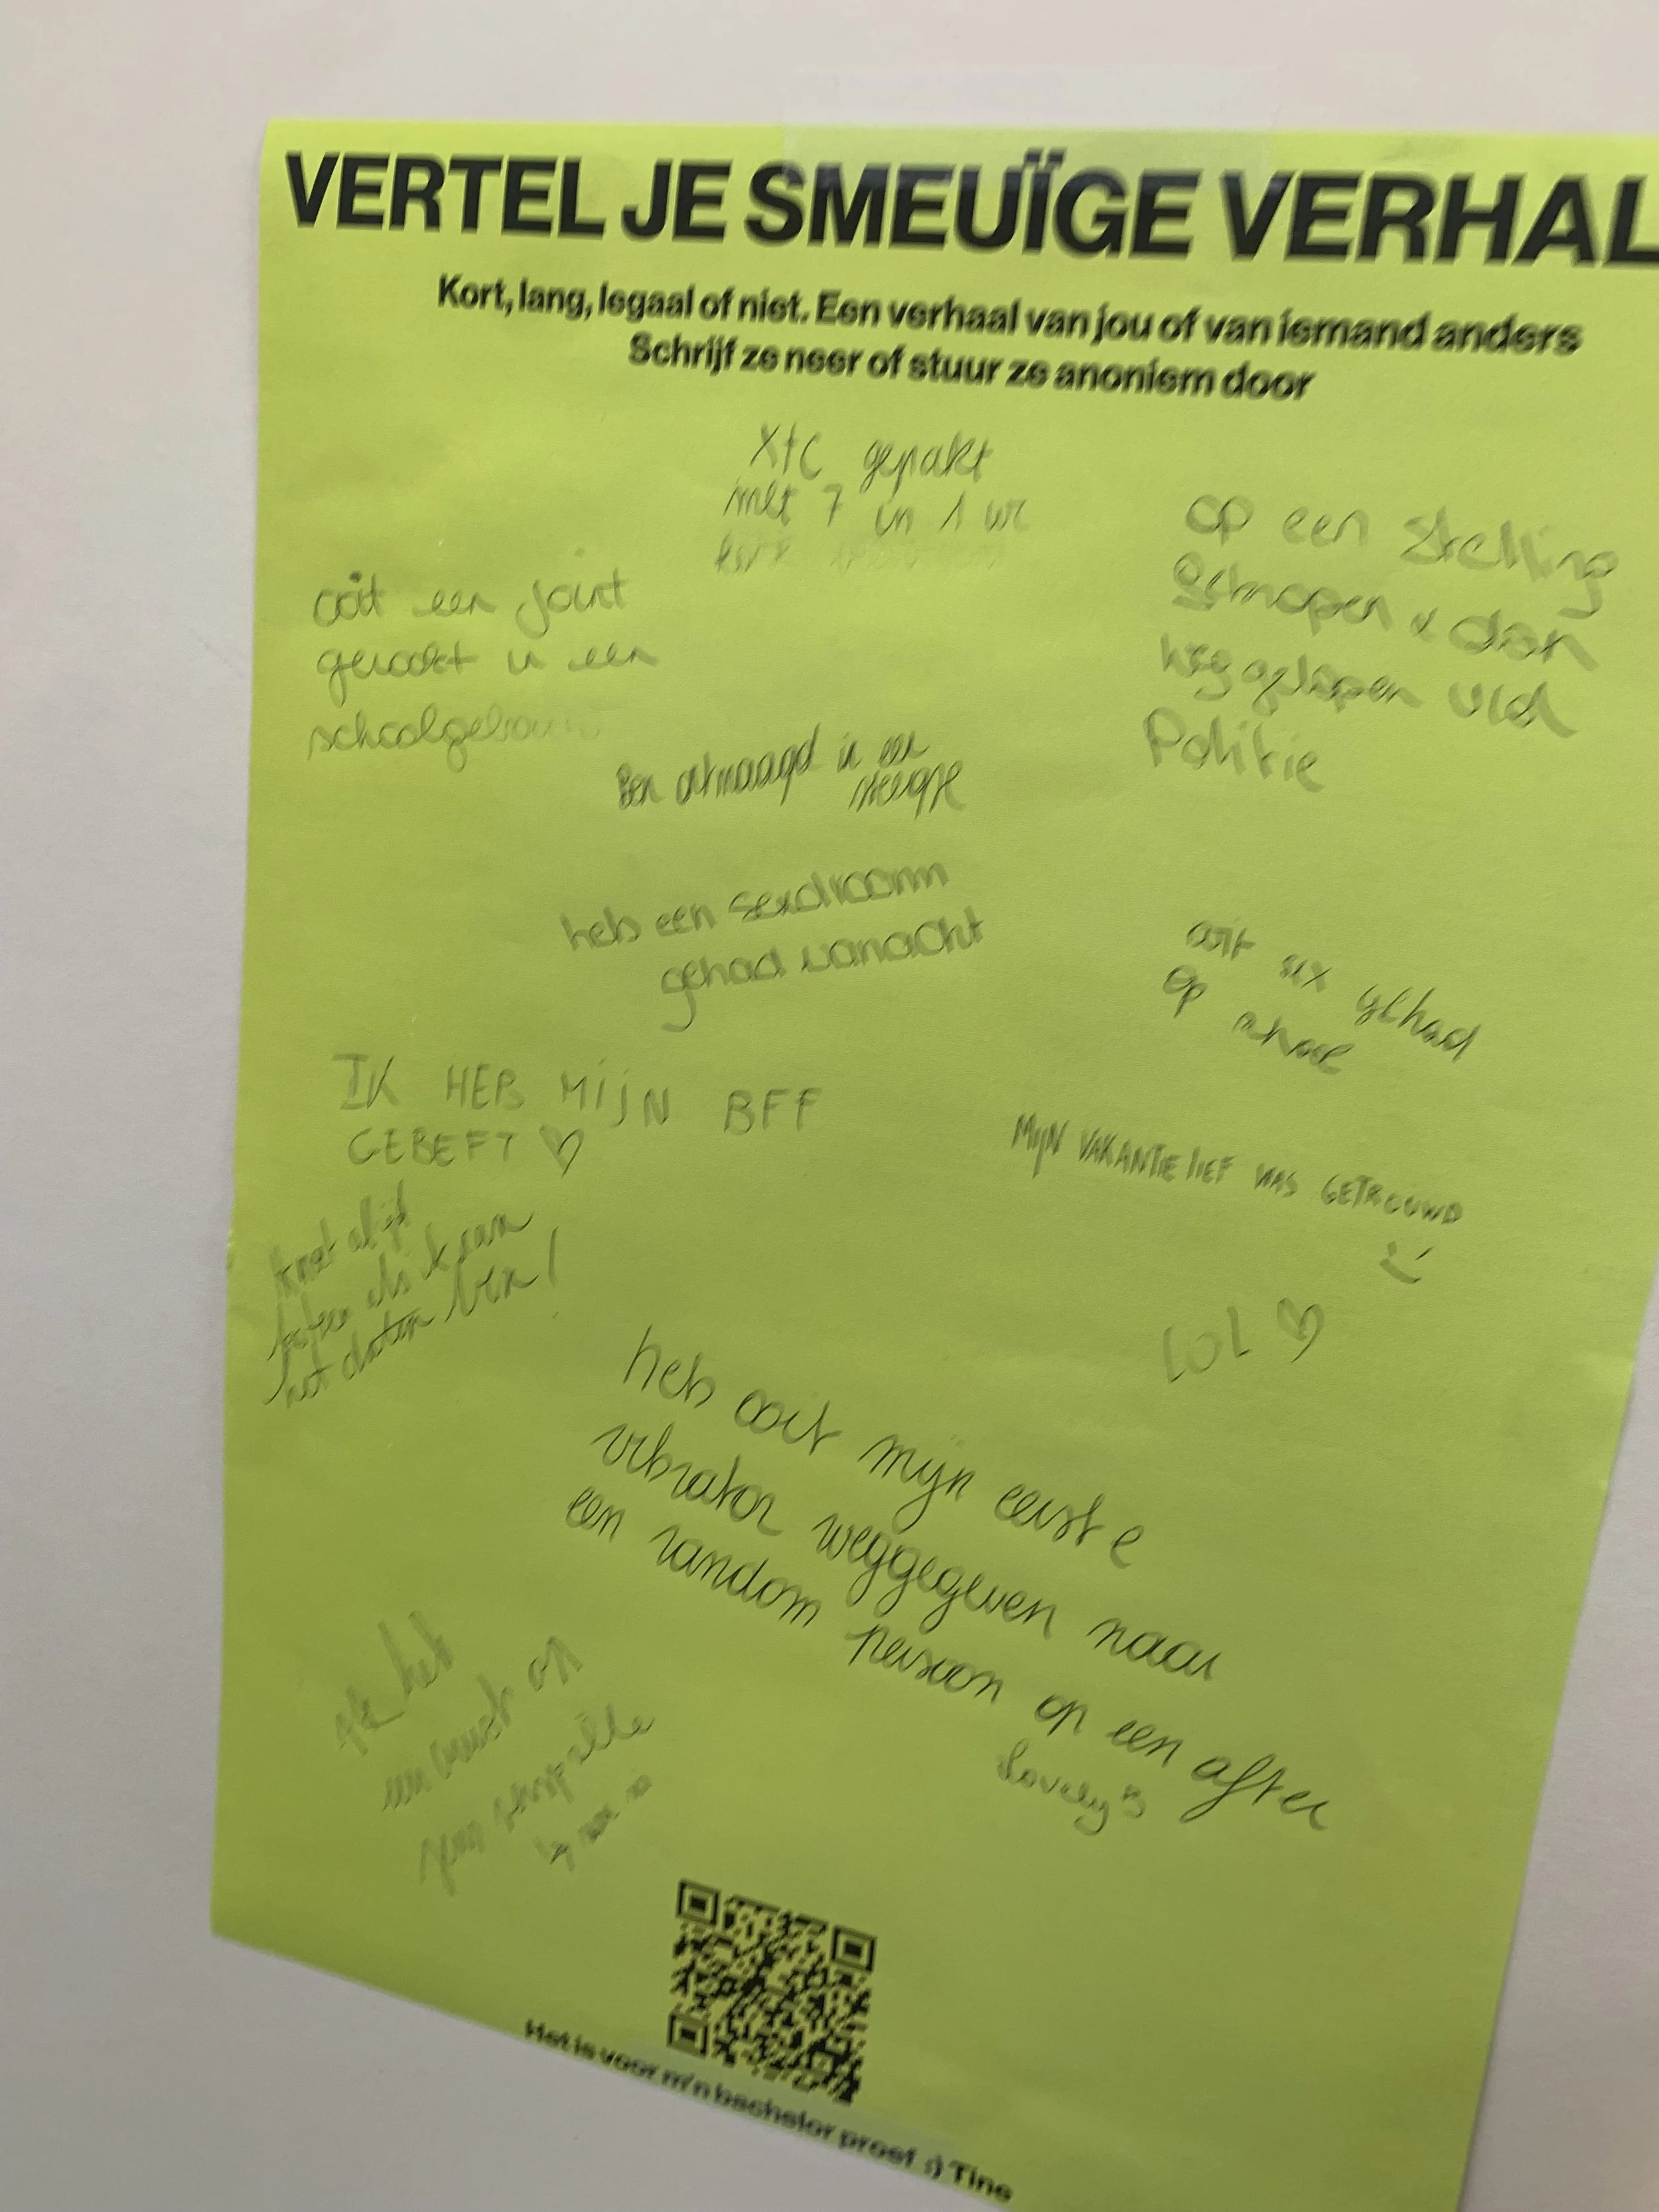 VERTEL JE SMEUÏGE VERHAL
Kort, lang, legaal of niet. Een verhaal van jou of van iemand anders
Schrijf ze neer of stuur ze anoniem door
XtC gepakt
met 7 in 1 wc
ooit een joint
gerookt in een
schoolgebouw
op een stelling
gekropen & dan
weggelopen vld
Politie
Ben ontmaagd in een
steegje
heb een sexdroom
gehad vanacht
ooit sex gehad
op school
IK HEB MIJN BFF
GEBEFT ♡
MIJN VAKANTIE lIEF WAS GETROUWD
:)
LOL ♡
ik moet altijd
als ik aan
het daten ben!
heb ooit mijn eerste
vibrator weggegeven naar
een random persoon op een after
Lovely
Ik heb
een crush op
Het is voor m'n bachelor proef :) Tine